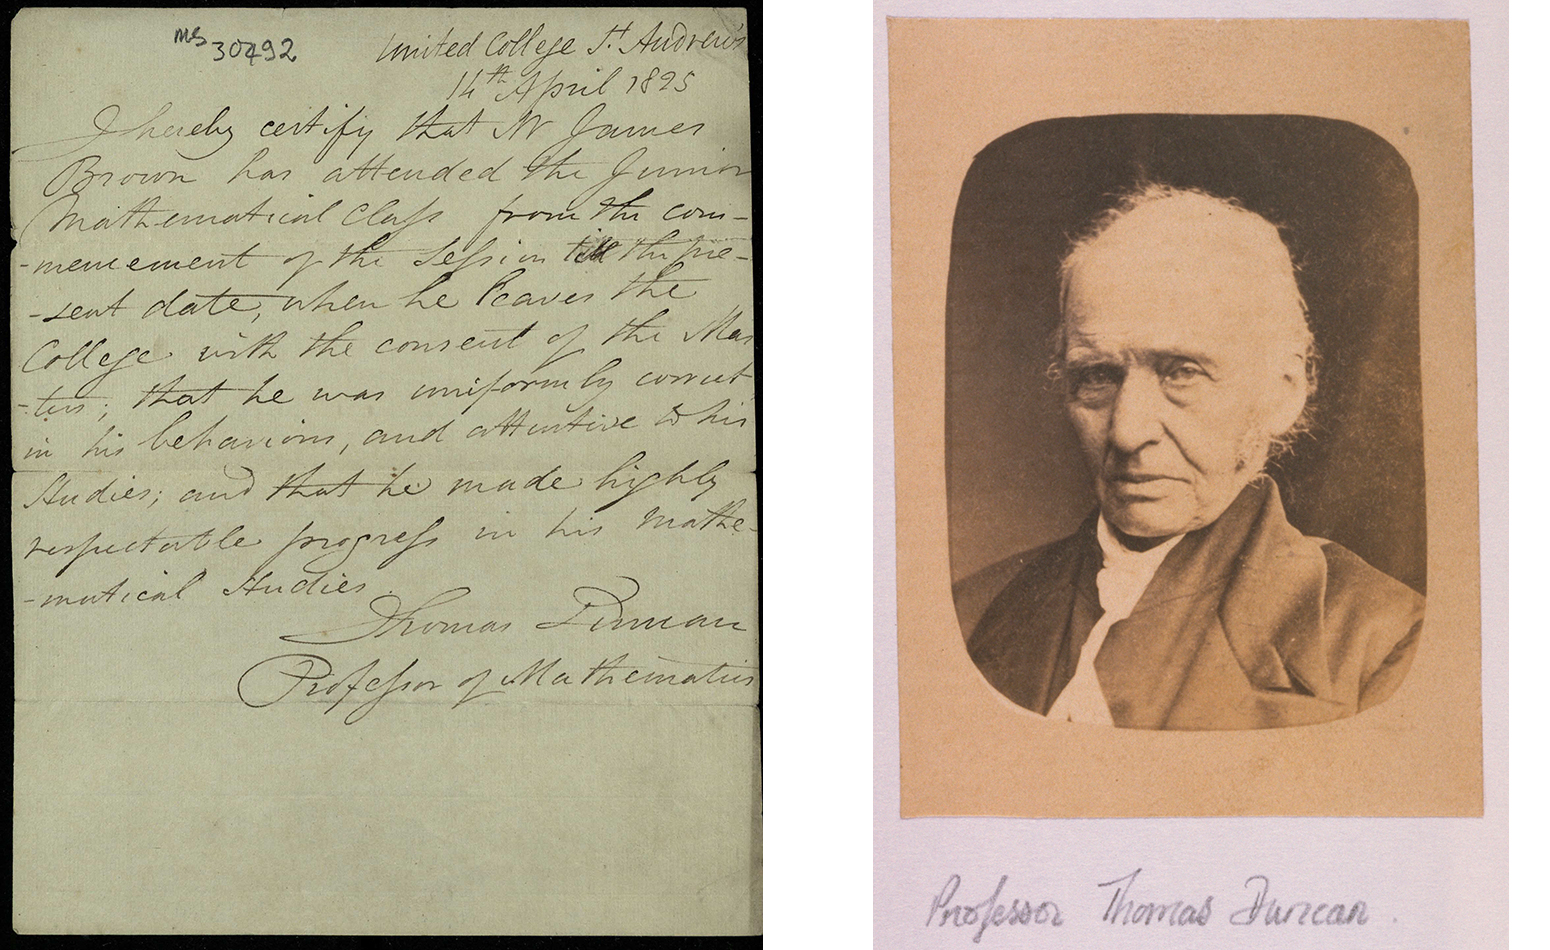 ms 30492
United College St. Andrew's
14th April 1825
I hereby certify that Mr James
Brown has attended the Junior
Mathematical Class from the com-
-mencement of the Session till the pre-
-sent date, when he leaves the
College with the consent of the Mas
-ters; that he was uniformly correct
in his behaviour, and attentive to his
Studies; and that he made highly
respectable progress in his Mathe-
-matical Studies.
Thomas Duncan
Professor of Mathematics
Professor Thomas Duncan.